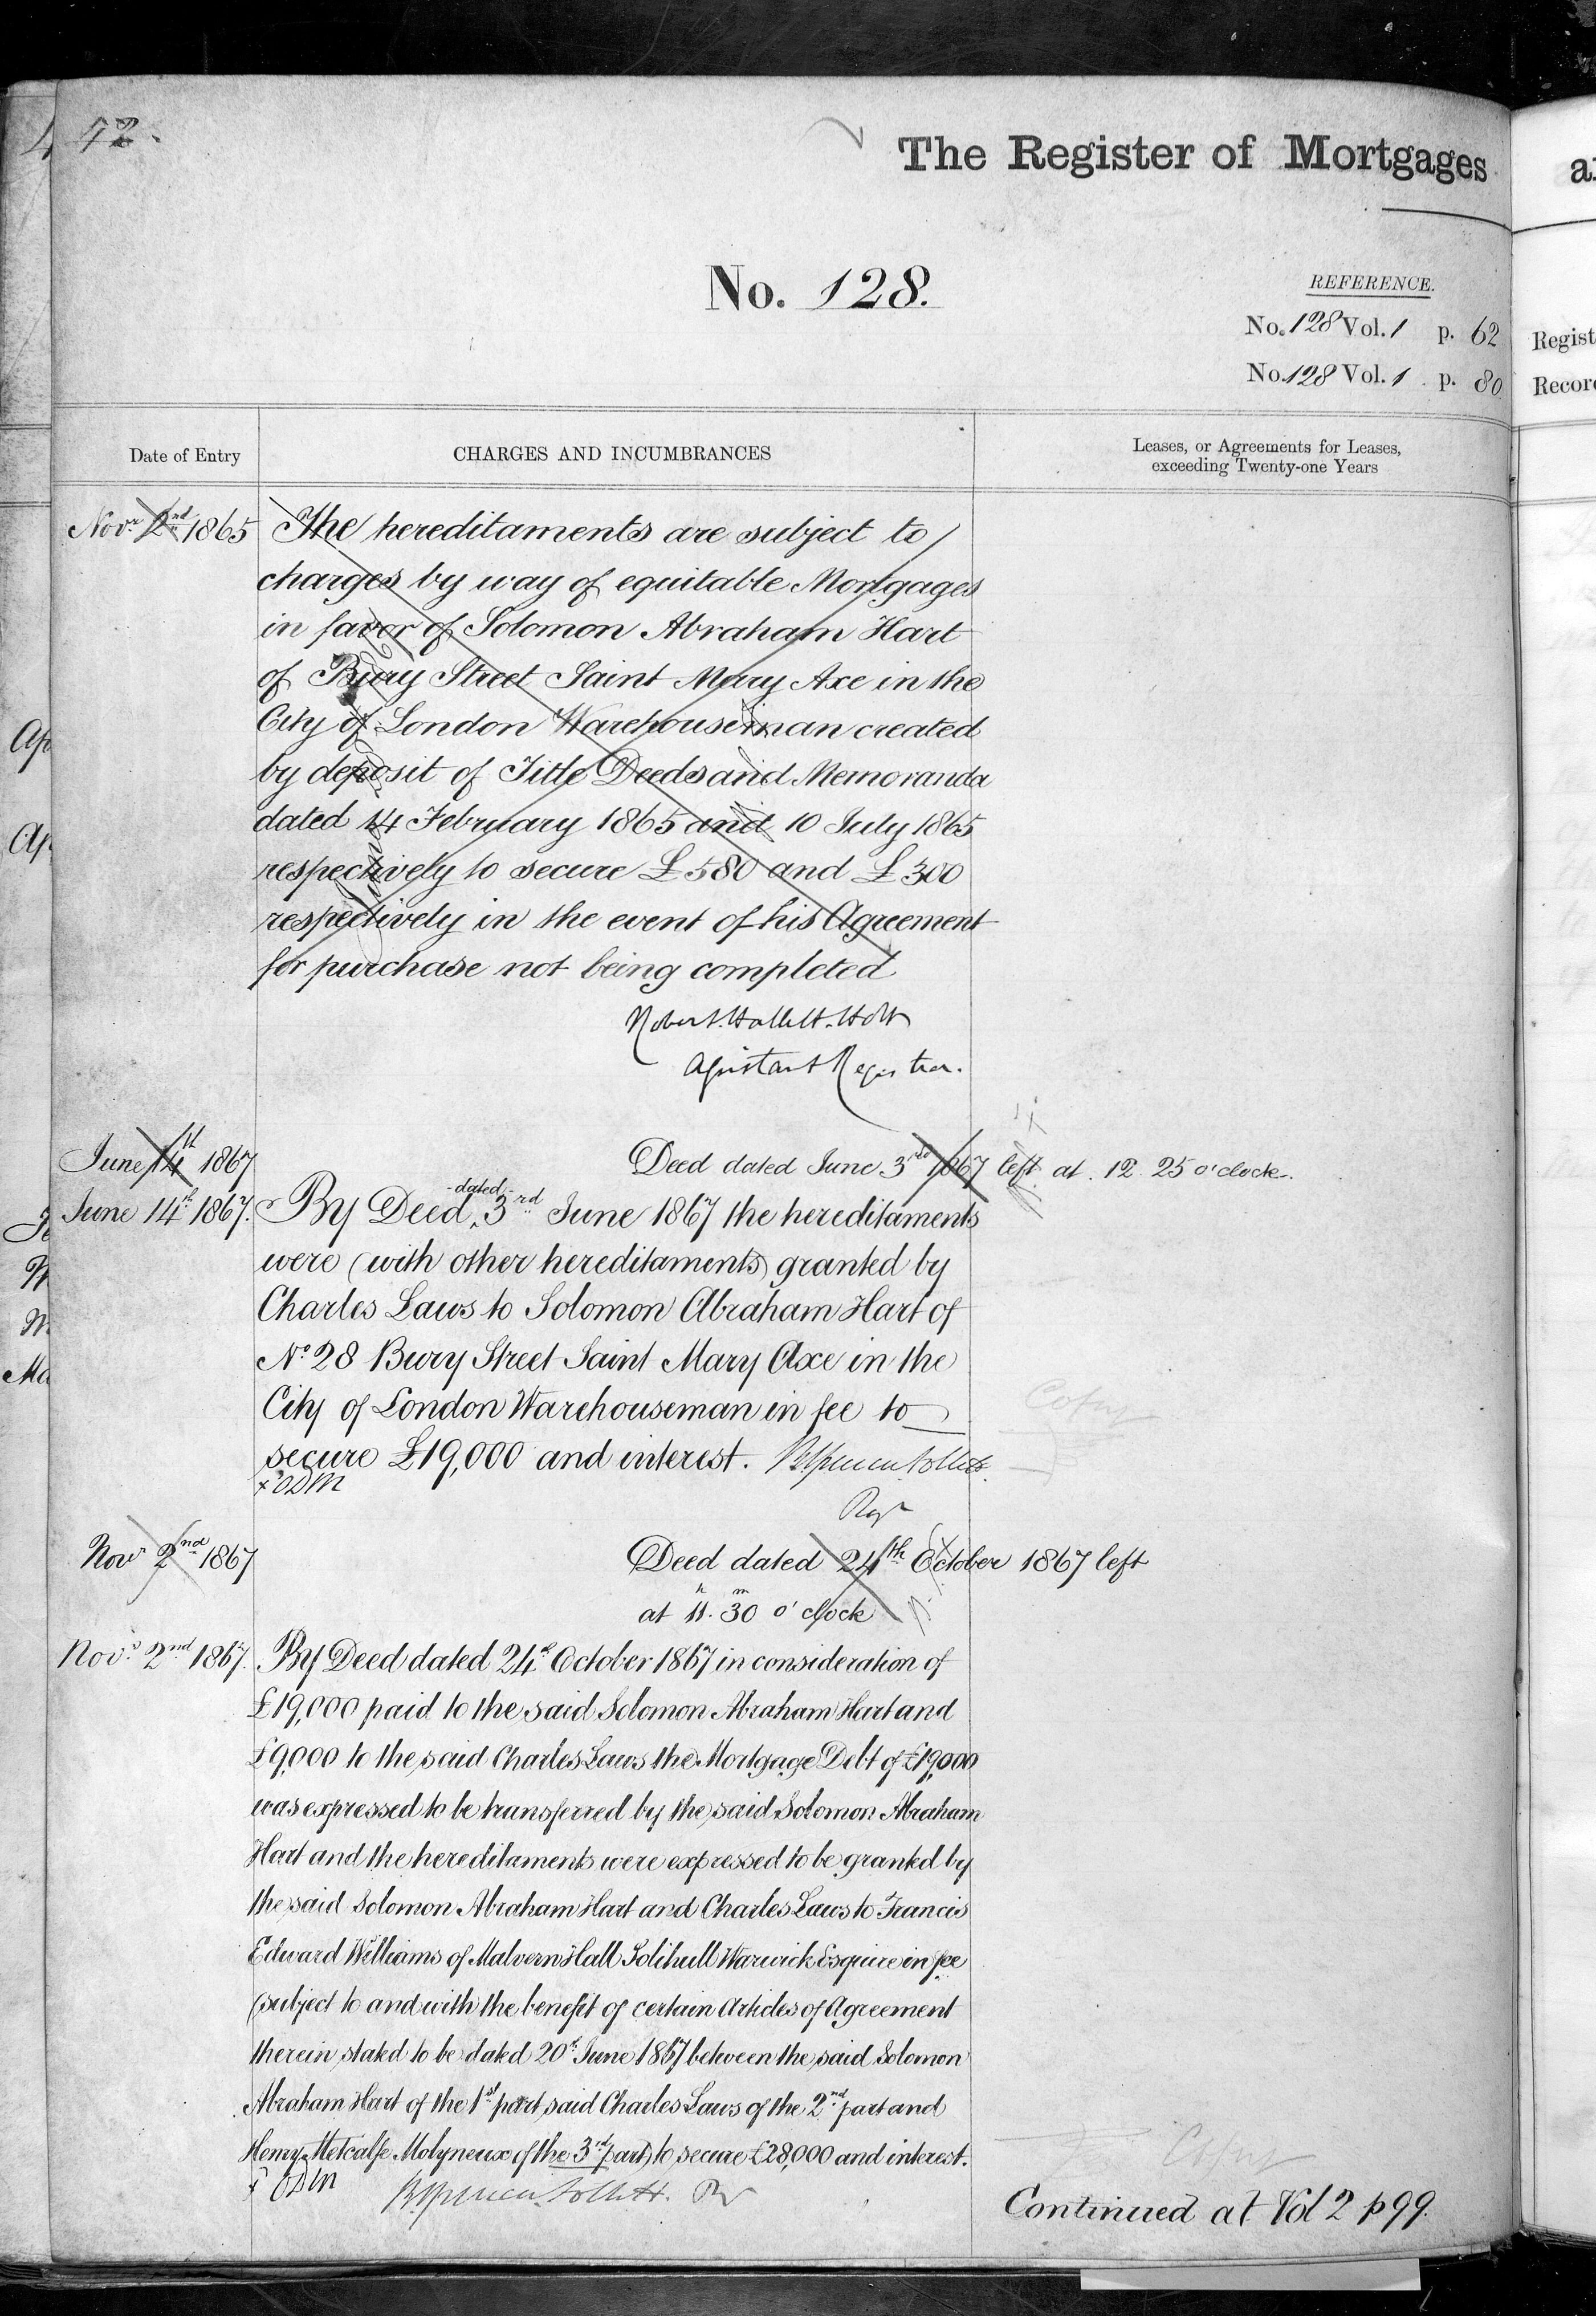 72.
The Register of Mortgages
No. 128.
REFERENCE.
No. 128 Vol. 1 p. 62
No. 128 Vol. 1 p. 80
Regist
Recor
Date of Entry
CHARGES AND INCUMBRANCES
Leases, or Agreements for Leases,
exceeding Twenty-one Years
Novr 2nd 1865 The hereditaments are subject to
charges by way of equitable Mortgages
in favor of Solomon Abraham Hart
of Bury Street Saint Mary Axe in the
City of London Warehouseman created
by deposit of Title Deeds and Memoranda
dated 14 February 1865 and 10 July 1865
respectively to secure £580 and £300
respectively in the event of his Agreement
for purchase not being completed
Robert Hallett Holt
Assistant Registrar.
June 14th 1867 Deed dated June 3rd 1867 left at 12.25 o'clock.
June 14th 1867. By Deed dated 3rd June 1867 the hereditaments
were (with other hereditaments) granted by
Charles Laws to Solomon Abraham Hart of
No 28 Bury Street Saint Mary Axe in the
City of London Warehouseman in fee to
secure £19,000 and interest. Follett
Regr
Novr 2nd 1867 Deed dated 24th October 1867 left
at 11h. 30m o'clock
Novr 2nd 1867. By Deed dated 24th October 1867 in consideration of
£19,000 paid to the said Solomon Abraham Hart and
£9,000 to the said Charles Laws the Mortgage Debt of £19,000
was expressed to be transferred by the said Solomon Abraham
Hart and the hereditaments were expressed to be granted by
the said Solomon Abraham Hart and Charles Laws to Francis
Edward Williams of Malvern Hall Solihull Warwick Esquire in fee
(subject to and with the benefit of certain Articles of Agreement
therein stated to be dated 20th June 1867 between the said Solomon
Abraham Hart of the 1st part said Charles Laws of the 2nd part and
Henry Metcalfe Molyneux of the 3rd part) to secure £28,000 and interest.
Follett. Rr
Continued at Vol 2 p 99.